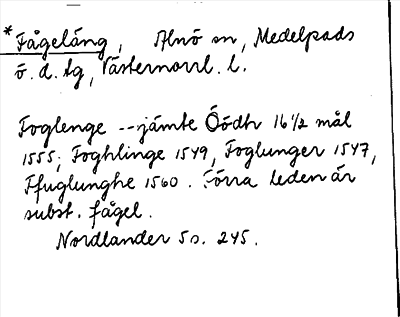 *Fågeläng, Alnö sn, Medelpads
ö. d. tg, Västernorrl. l.
Foglenge -- jämte Öödh 16 1/2 mål
1555; Foghlinge 1549, Foglunger 1547,
Ffuglunghe 1560. Förra leden är
subst. fågel.
Nordlander 5 s. 245.